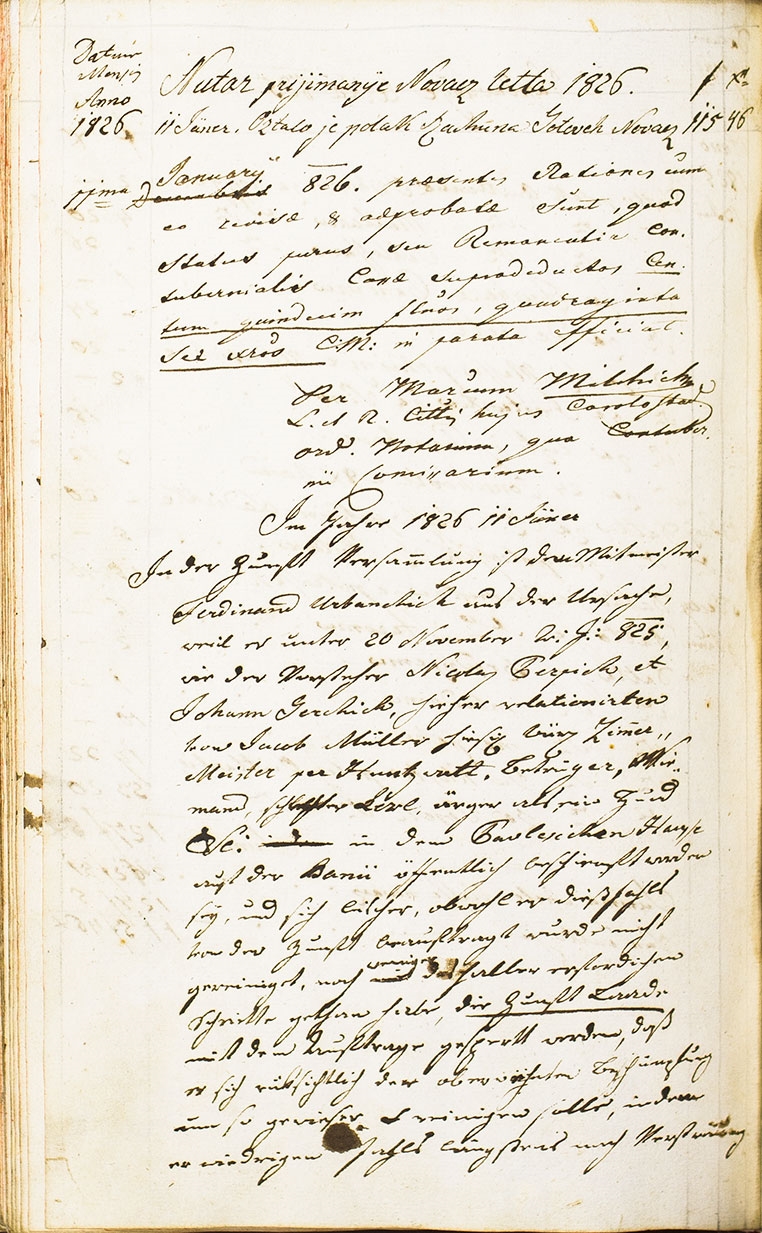 Datum
Mensis
Anno
1826.
Nutar prijimanye Novacz letta 1826. f xr
11 Jäner. Ostalo je polak Rachuna Gotoveh Novacz 115 46
11ma Januarÿ 826. præsentes Rationes cum
eo revisæ, & adprobatæ sunt, quod
Status purus, seu Remanentia Con-
tubernialis Cassæ supradeductos Cen-
tum quindecim flnos, quadraginta
sex xros C.M: in parata efficiat.
Per Marcum Milchich
L. et R. Cittis hujus Carolostad.
ord. Notarium, qua Contuber-
nii Comissarium.
Im Jahre 1826 11 Jäner
In der Zunft Versammlung ist dem Mitmeister
Ferdinand Urbanchich aus der Ursache,
weil er unter 20 November v. J: 825,
wie der Vorsteher Nicolaus Perpich, et
Johann Gerchich, hieher relationirten
von Jacob Müller hiesig bürg Zimer-
Meister per Hundsfutt, Betrüger, Nie-
mand, schlechter Kerl, ärger als ein Hund
in dem Pavlesichen Hause
auf der Banii öffentlich beschimpft worden
sey, und sich bisher, obwohl er dießfahls
von der Zunft beauftragt wurde nicht
gereiniget, noch weniger deshalber erforderlichen
Schritte gethan habe, die Zunft Laade
mit dem Auftrage gesperrt worden, daß
er sich rüksichtlich der oberwähnten Beschimpfung
um so gewisser reinigen solle, indem
er wiedrigen fahls längstens nach Verstreichung